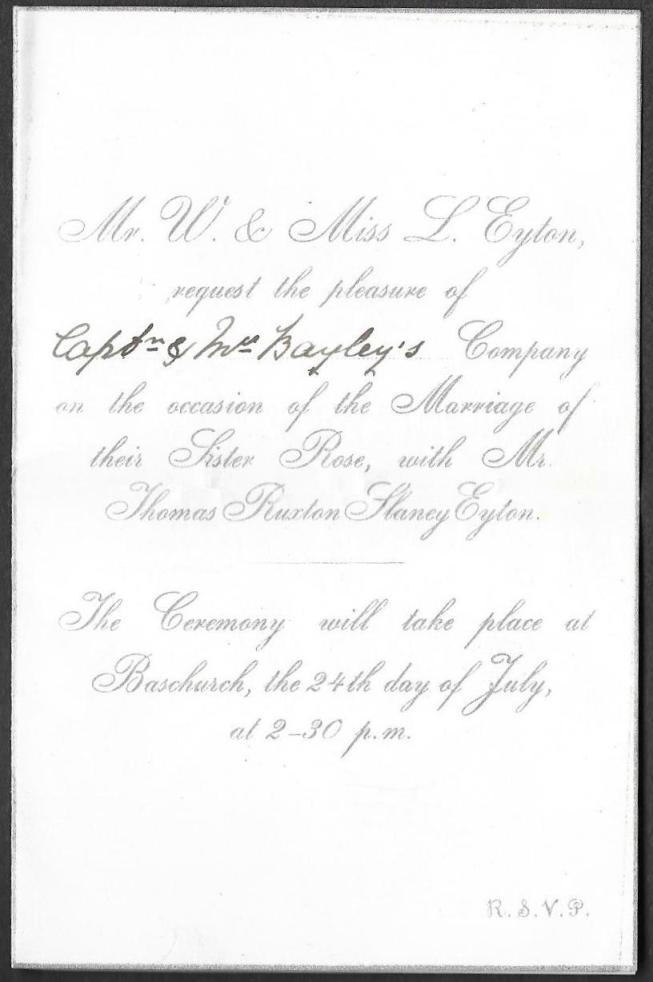 Mr. W. & Miss L. Eyton,
request the pleasure of
Captn & Mrs Bayley's Company
on the occasion of the Marriage of
their Sister Rose, with Mr.
Thomas Ruxton Slaney Eyton.
The Ceremony will take place at
Baschurch, the 24th day of July,
at 2-30 p.m.
R. S. V. P.